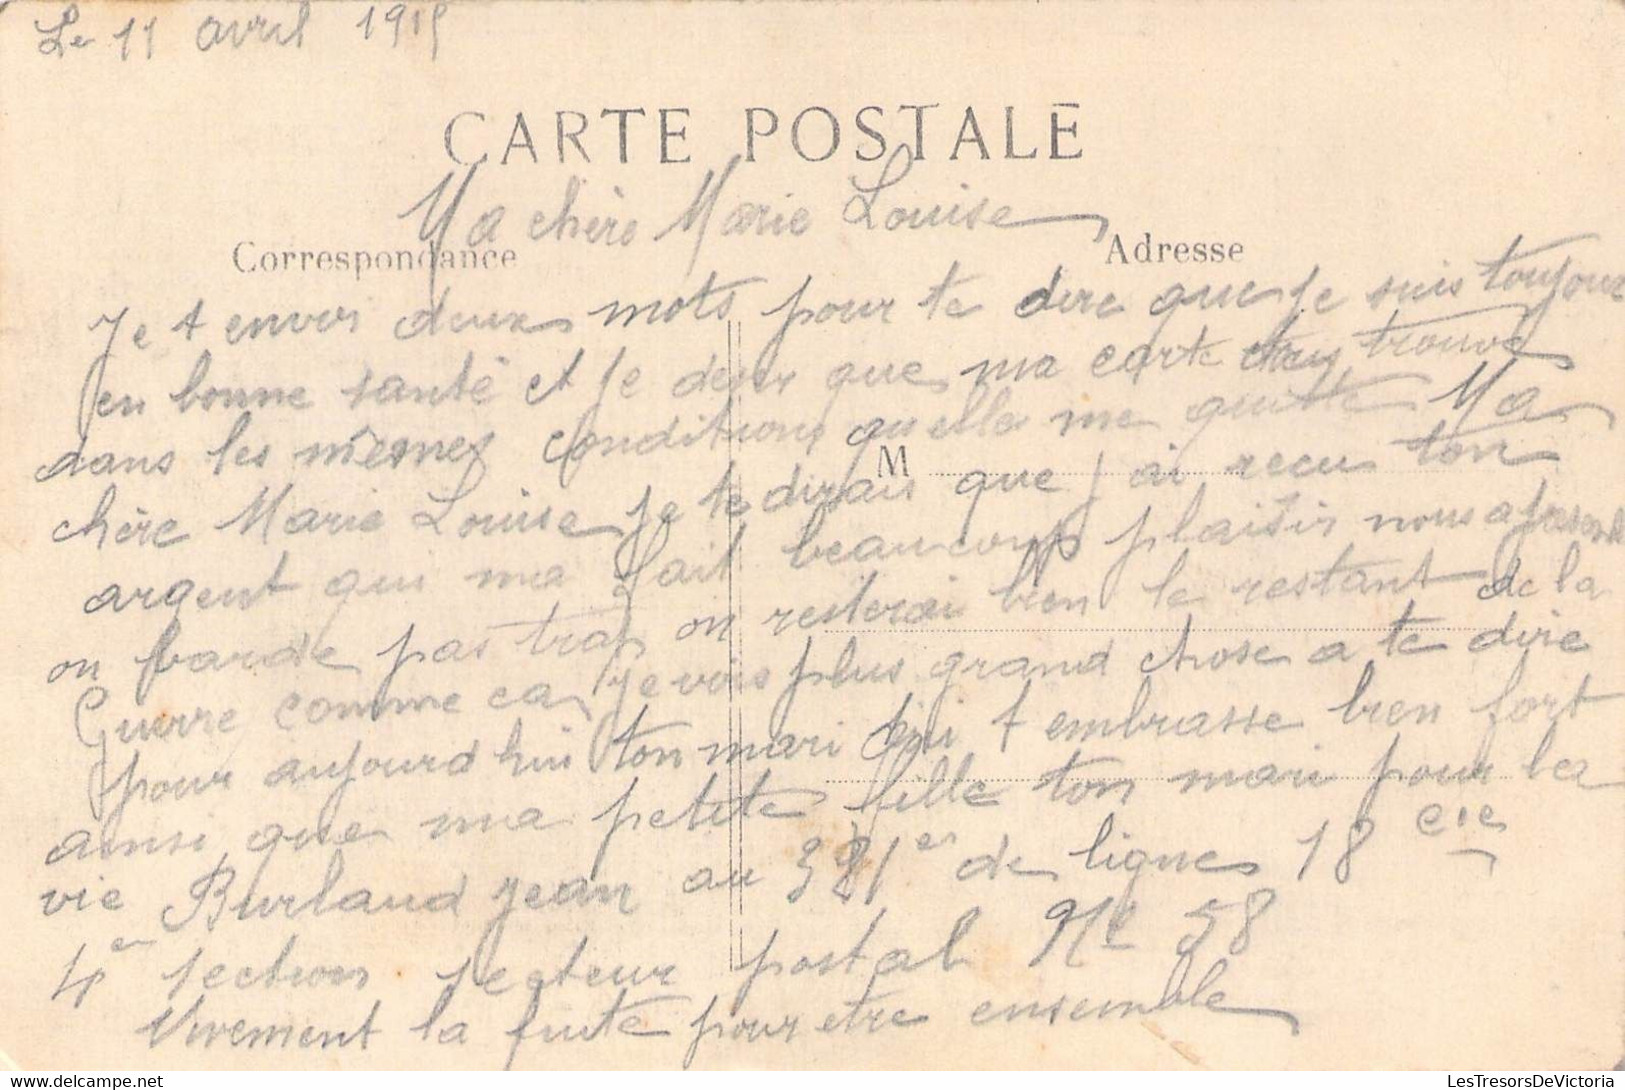 Le 11 avril 1915
CARTE POSTALE
Ma chère Marie Louise
Correspondance
Adresse
Je t envoi deux mots pour te dire que je suis toujour
en bonne santé et je desir que ma carte trouve
dans les mêmes conditions qu elle me quitte Ma
M
chère Marie Louise je te dirais que j ai recu ton
argent qui ma fait beaucoup plaisir nous a
on barde pas trop on resterai bien le restant de la
Guerre comme ca je vois plus grand chose a te dire
pour aujourd hui ton mari qui t embrasse bien fort
ainsi que ma petite fille ton mari pour la
vie Burlaud jean au 321er de ligne 18 cie
4er section secteur postal No 58
Vivement la fuite pour etre ensemble
LesTresorsDeVictoria